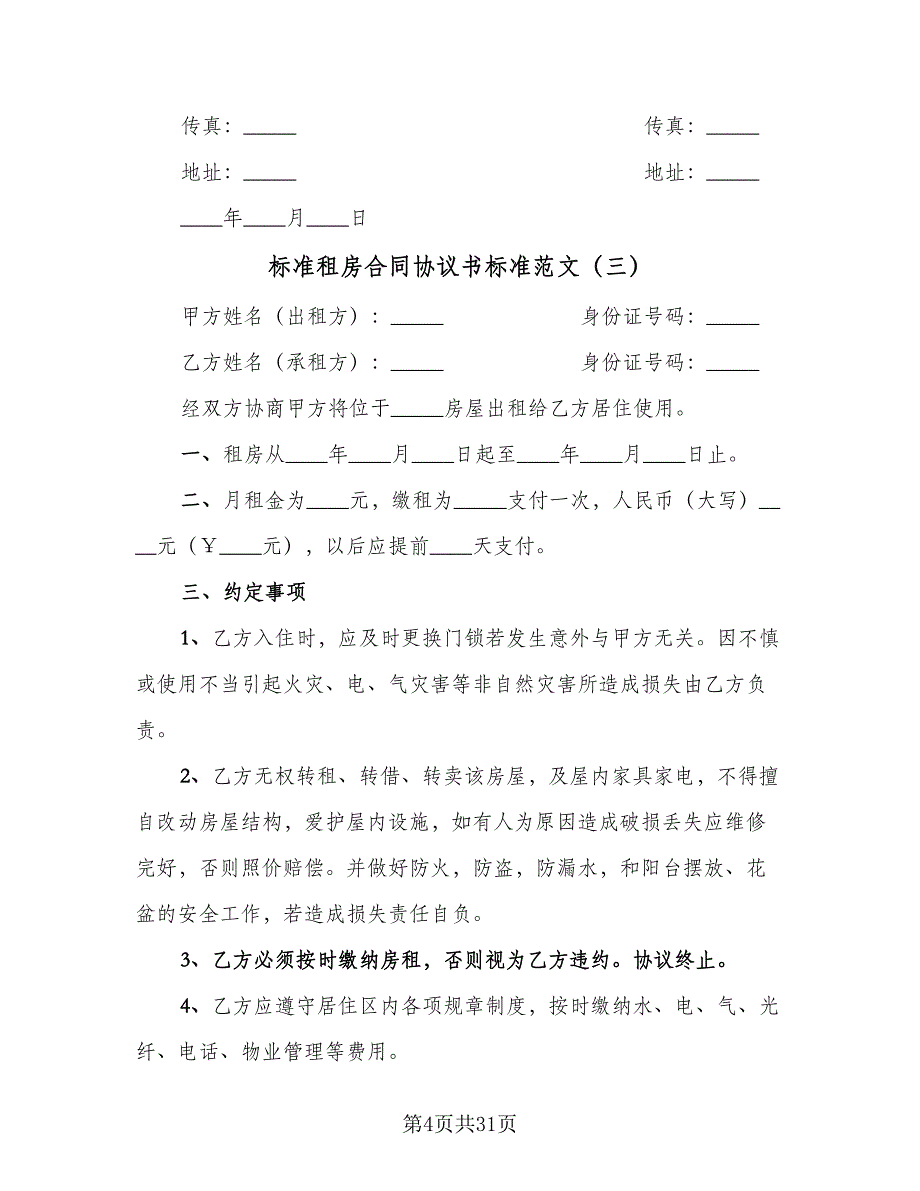 传真：_____ 传真：_____
地址：_____ 地址：_____
____年____月____日
标准租房合同协议书标准范文（三）
甲方姓名（出租方）：_____ 身份证号码：_____
乙方姓名（承租方）：_____ 身份证号码：_____
经双方协商甲方将位于_____房屋出租给乙方居住使用。
一、租房从____年____月____日起至____年____月____日止。
二、月租金为____元，缴租为_____支付一次，人民币（大写）__
__元（￥____元），以后应提前____天支付。
三、约定事项
1、乙方入住时，应及时更换门锁若发生意外与甲方无关。因不慎
或使用不当引起火灾、电、气灾害等非自然灾害所造成损失由乙方负
责。
2、乙方无权转租、转借、转卖该房屋，及屋内家具家电，不得擅
自改动房屋结构，爱护屋内设施，如有人为原因造成破损丢失应维修
完好，否则照价赔偿。并做好防火，防盗，防漏水，和阳台摆放、花
盆的安全工作，若造成损失责任自负。
3、乙方必须按时缴纳房租，否则视为乙方违约。协议终止。
4、乙方应遵守居住区内各项规章制度，按时缴纳水、电、气、光
纤、电话、物业管理等费用。
第4页共31页